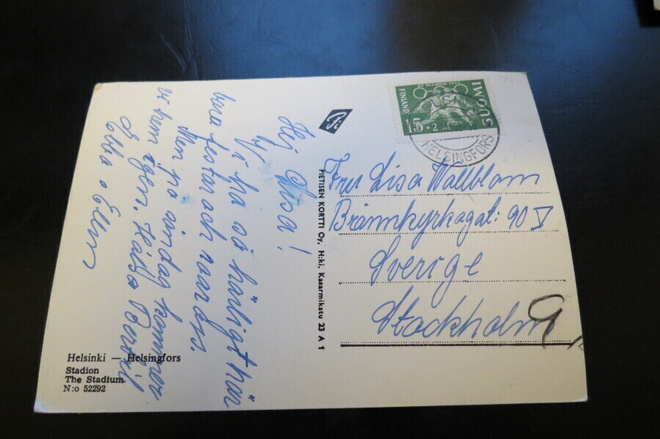 Hej Lisa!
Vi ha så härligt här
bara fester och
Men på söndag kommer
vi hem igen. Hälsa Bertil
Ebba o Ellen
Helsinki — Helsingfors
Stadion
The Stadium
N:o 52292
PIETISEN KORTTI Oy, H:ki, Kasarmikatu 23 A 1
SUOMI
FINLAND
15
+2
HELSINGFORS
Fru Lisa Wallblom
Brännkyrkagat: 90 V
Sverige
Stockholm